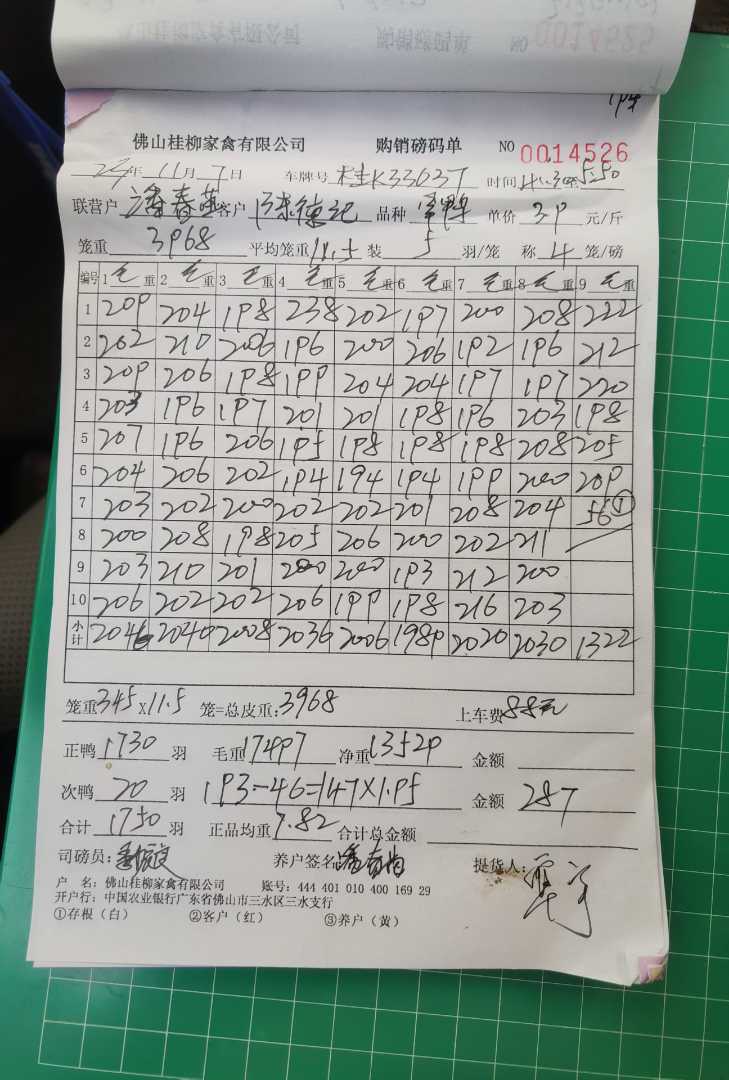 佛山桂柳家禽有限公司 购销磅码单 NO 0014526
24年 11月 7日 车牌号 桂K33637 时间 5:50
联营户 潘春 客户 陈德记 品种 单价 3.9 元/斤
笼重 3968 平均笼重 11.5 装 5 羽/笼 称 4 笼/磅
编号 1 毛重 2 毛重 3 毛重 4 毛重 5 毛重 6 毛重 7 毛重 8 毛重 9 毛重
1 209 204 198 238 202 197 200 208 222
2 202 210 206 196 200 206 192 196 212
3 209 206 198 199 204 204 197 197 220
4 203 196 197 201 201 198 196 203 198
5 207 196 206 195 198 198 198 208 205
6 204 206 202 194 194 194 199 200 209
7 203 202 200 202 202 201 208 204 56①
8 200 208 198 205 206 200 202 211
9 203 210 201 200 200 193 212 200
10 206 202 202 206 199 198 216 203
小计 2046 2040 2008 2036 2006 1989 2020 2030 1322
笼重 345×11.5 笼=总皮重: 3968 上车费 88元
正鸭 1730 羽 毛重 17497 净重 13529 金额
次鸭 20 羽 193-46=147×1.95 金额 287
合计 1750 羽 正品均重 7.82 合计总金额
司磅员: 养户签名: 潘春 提货人:
户 名: 佛山桂柳家禽有限公司 账号: 444 401 010 400 169 29
开户行: 中国农业银行广东省佛山市三水区三水支行
①存根（白） ②客户（红） ③养户（黄）